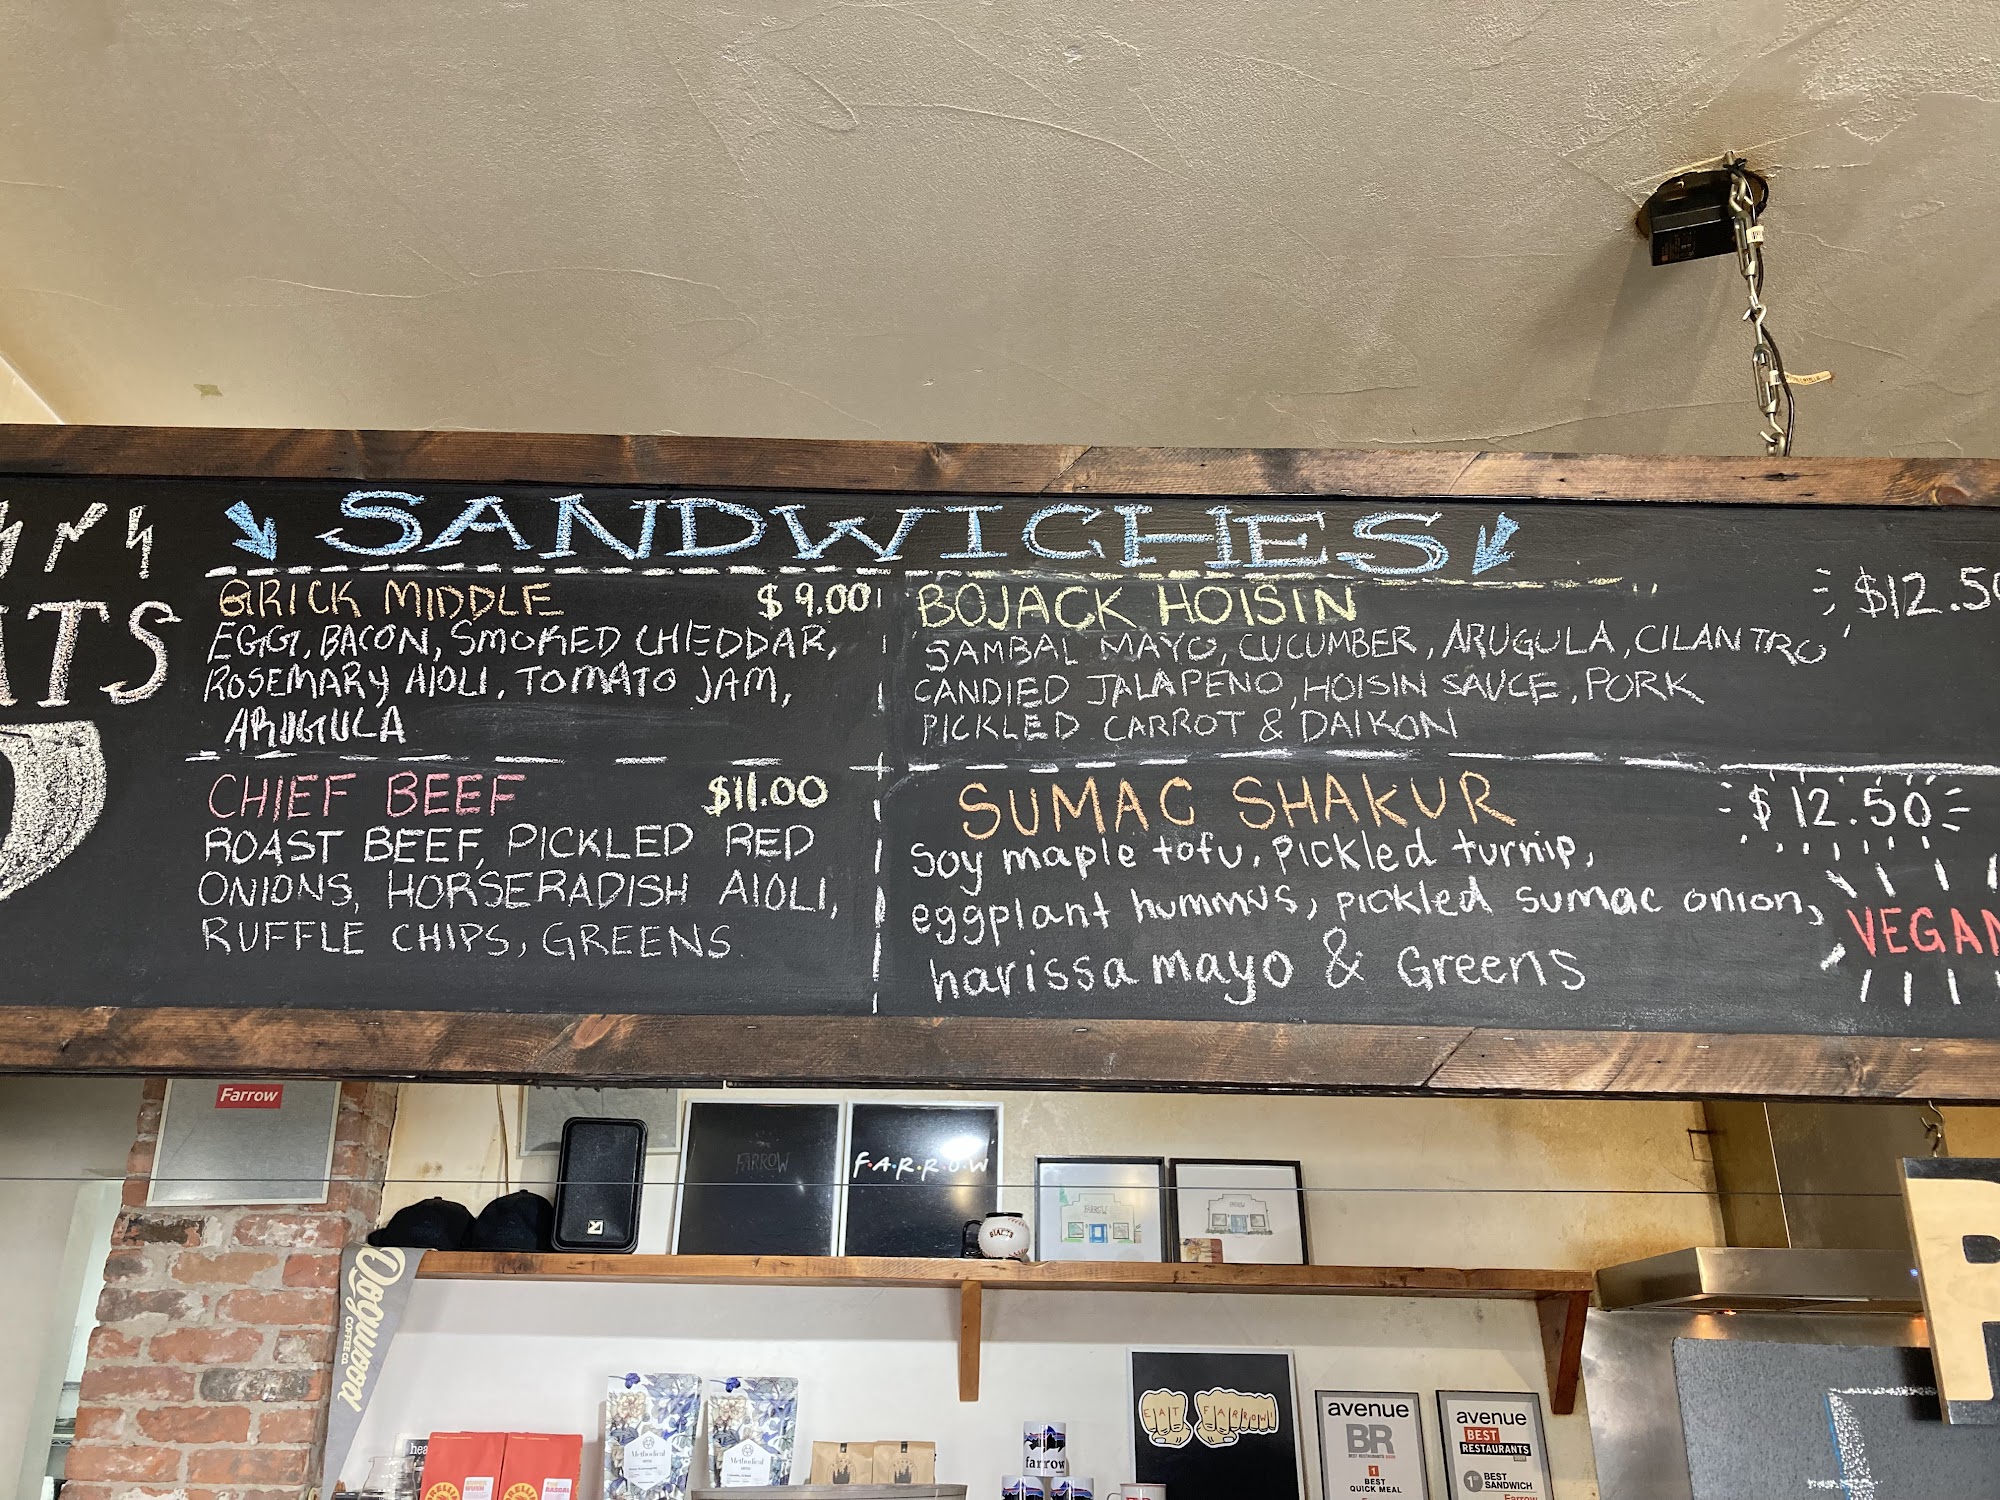 SANDWICHES
GRICK MIDDLE $9.00
EGG, BACON, SMOKED CHEDDAR,
ROSEMARY AIOLI, TOMATO JAM,
ARUGULA
CHIEF BEEF $11.00
ROAST BEEF, PICKLED RED
ONIONS, HORSERADISH AIOLI,
RUFFLE CHIPS, GREENS
BOJACK HOISIN $12.50
SAMBAL MAYO, CUCUMBER, ARUGULA, CILANTRO
CANDIED JALAPENO, HOISIN SAUCE, PORK
PICKLED CARROT & DAIKON
SUMAC SHAKUR $12.50
Soy maple tofu, pickled turnip,
eggplant hummus, pickled sumac onion,
harissa mayo & Greens
VEGAN
Farrow
FARROW
F·A·R·R·O·W
GIANTS
Rogwood
COFFEE CO.
Methodical
Methodical
farrow
EAT FARROW!
avenue
BR
1
BEST
QUICK MEAL
avenue
BEST
RESTAURANTS
1st BEST
SANDWICH
Farrow